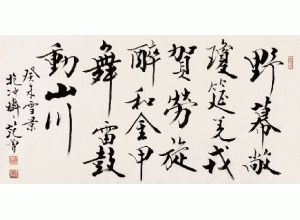 野幕敞
瓊筵羌戎
賀勞旋
醉和金甲
舞雷鼓
動山川
癸未雪
抱沖齋范曾